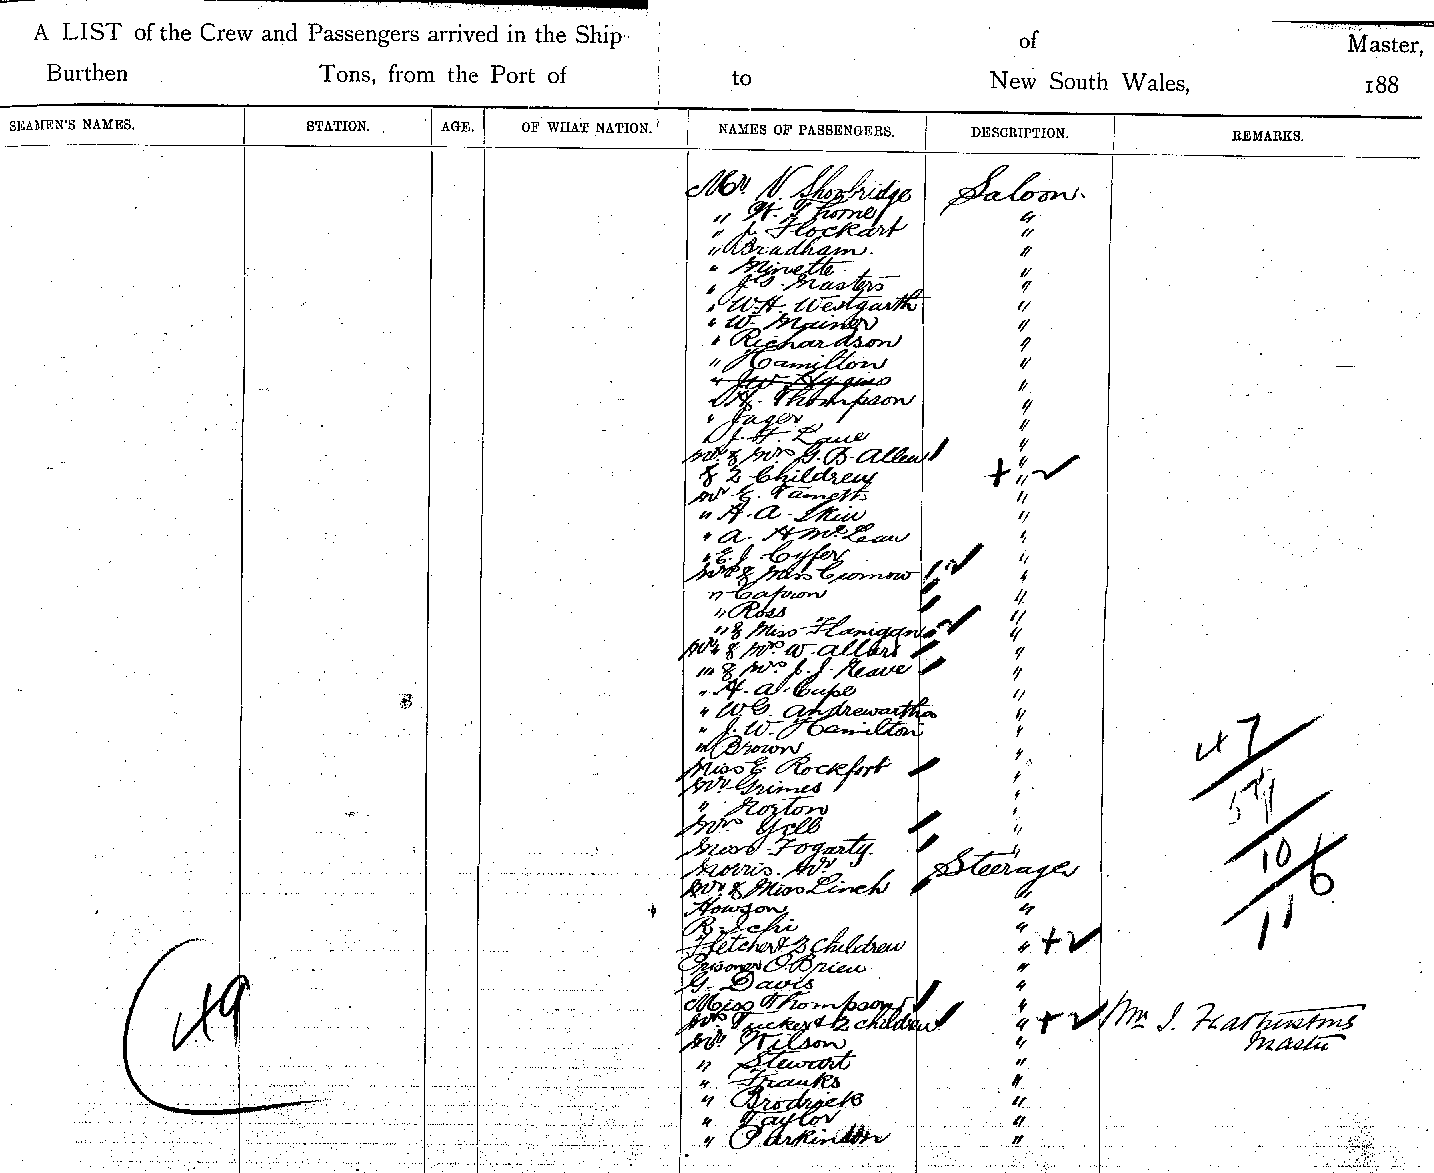 A LIST of the Crew and Passengers arrived in the Ship of Master,
Burthen Tons, from the Port of to New South Wales, 188
SEAMEN'S NAMES. STATION. AGE. OF WHAT NATION. NAMES OF PASSENGERS. DESCRIPTION. REMARKS.
Mr N. Shoobridge Saloon.
" H. Thorne "
" J. Flockart "
" Bradham. "
" Minette "
" J.S. Masters "
" W.H. Westgarth "
" W. Mainer "
" Richardson "
" Hamilton "
" J.W. Higgins "
" A. Thompson "
" Jager "
" J. H. Lane "
Mr. & Mrs G. B. Allen "
& 2 Children " + 2
Mr E. "
" H. A. Skin "
" A. H McLean "
" E. J. Cyfer "
Mr & Mrs "
" Capron "
" Ross "
" & Miss Flanigan "
Mr & Mrs W. "
" & Mrs J. J. Neave "
" H. A. Cupe "
" W.G. Andrewartha "
" J. W. Hamilton "
" Brown "
Miss E Rockfort " 47
Mr Grimes "
" Norton " 5
Mrs Gell "
Miss Fogarty. " 10
Morris. Mr Steerage 6
Mr & Miss Linch 11
Howson "
R. Ichi "
Fletcher & 2 Children " + 2
Prisoner O'Brien "
G. Davis "
Miss Thompson "
49
Mrs Tucker & 2 children " + 2 Mr J.
Mr Wilson " Master
" Stewart "
" Franks "
" Brodrick "
" Taylor "
" Parkinson "